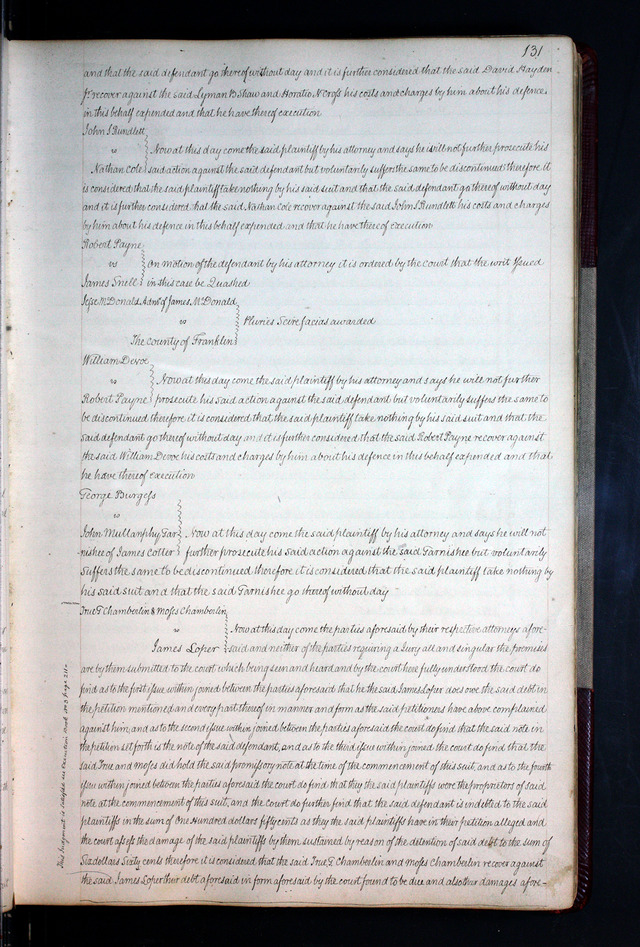 131
and that the said defendant go thereof without day and it is further considered that the said David Hayden
Jr recover against the said Lyman B Shaw and Horatio N Cross his costs and charges by him about his defence
in this behalf expended and that he have thereof execution
John S Rundlett
vs Now at this day come the said plaintiff by his attorney and says he will not further prosecute his
Nathan Cole said action against the said defendant but voluntarily suffers the same to be discontinued therefore it
is considered that the said plaintiff take nothing by his said suit and that the said defendant go thereof without day
and it is further considered that the said Nathan Cole recover against the said John S Rundlett his costs and charges
by him about his defence in this behalf expended and that he have thereof execution
Robert Payne
vs On motion of the defendant by his attorney it is ordered by the court that the writ issued
James Snell in this case be Quashed
Jesse McDonald Admr of James McDonald
vs Pluries Scire facias awarded
The County of Franklin
William Devoe
vs Now at this day come the said plaintiff by his attorney and says he will not further
Robert Payne prosecute his said action against the said defendant but voluntarily suffers the same to
be discontinued therefore it is considered that the said plaintiff take nothing by his said suit and that the
said defendant go thereof without day and it is further considered that the said Robert Payne recover against
the said William Devoe his costs and charges by him about his defence in this behalf expended and that
he have thereof execution
George Burgess
vs
John Mullanphy Gar Now at this day come the said plaintiff by his attorney and says he will not
nishee of James Cotter further prosecute his said action against the said Garnishee but voluntarily
suffers the same to be discontinued therefore it is considered that the said plaintiff take nothing by
his said suit and that the said Garnishee go thereof without day
True G Chamberlin & Moses Chamberlin
vs Now at this day come the parties aforesaid by their respective attorneys afore-
James Loper said and neither of the parties requiring a Jury all and singular the premises
are by them submitted to the court which being seen and heard and by the court here fully understood the court do
find as to the first issue within joined between the parties aforesaid that he the said James Loper does owe the said debt in
the petition mentioned and every part thereof in manner and form as the said petitioners have above complained
against him, and as to the second issue within joined between the parties aforesaid the court do find that the said note in
the petition set forth is the note of the said defendant, and as to the third issue within joined the court do find that the
said True and Moses did hold the said promissory note at the time of the commencement of this suit, and as to the fourth
issue within joined between the parties aforesaid the court do find that they the said plaintiffs were the proprietors of said
note at the commencement of this suit, and the court do further find that the said defendant is indebted to the said
plaintiffs in the sum of One Hundred dollars fifty cents as they the said plaintiffs have in their petition alleged and
the court assess the damage of the said plaintiffs by them sustained by reason of the detention of said debt to the sum of
Six dollars Sixty cents therefore it is considered that the said True G Chamberlin and Moses Chamberlin recover against
the said James Loper their debt aforesaid in form aforesaid by the court found to be due and also their damages afore-
This Judgment is Satisfied see Execution Book No 3 page 211